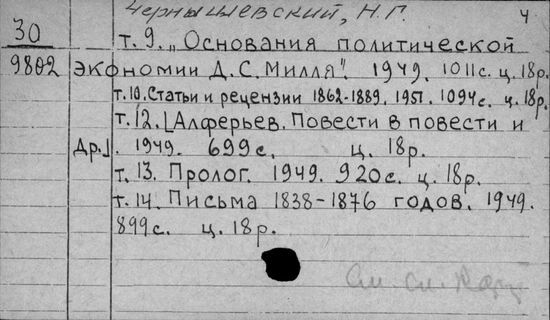 Чернышевский, Н. Г. 4
30
9802
т. 9. „Основания политической
экономии Д. С. Милля". 1949. 1011 с. ц. 18р.
т. 10. Статьи и рецензии 1862-1889. 1951. 1094 с. ц. 18р.
т. 12. [Алферьев. Повести в повести и
др.]. 1949. 699 с. ц. 18р.
т. 13. Пролог. 1949. 920с. ц. 18р.
т. 14. Письма 1838-1876 годов. 1949.
899 с. ц. 18р.
См. сл. карт